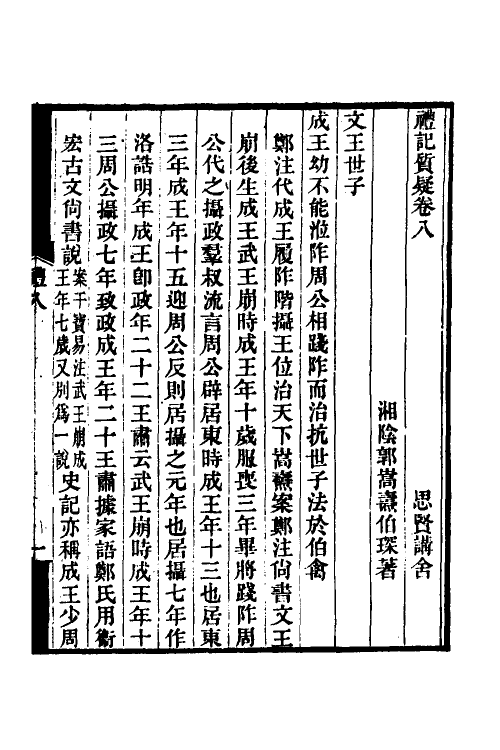 禮記質疑卷八
思賢講舍
湘陰郭嵩燾伯琛著
文王世子
成王幼不能涖阼周公相踐阼而治抗世子法於伯禽
鄭注代成王履阼階攝王位治天下嵩燾案鄭注尚書文王
崩後生成王武王崩時成王年十歲服喪三年畢將踐阼周
公代之攝政羣叔流言周公辟居東時成王年十三也居東
三年成王年十五迎周公反則居攝之元年也居攝七年作
洛誥明年成王卽政年二十二王肅云武王崩時成王年十
三周公攝政七年致政成王年二十王肅據家語鄭氏用衞
宏古文尚書說案干寶易注武王崩成王年七歲又別爲一說史記亦稱成王少周
禮八
一